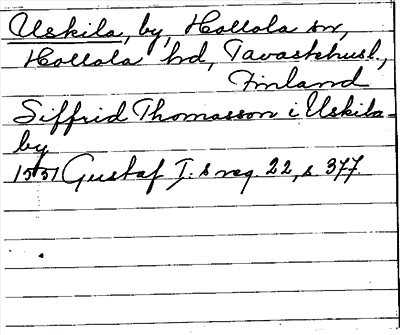 Uskila, by, Hollola sn,
Hollola hd, Tavastehusl.,
Finland
Siffrid Thomasson i Uskila-
by
1551 Gustaf I. s reg. 22, s. 377